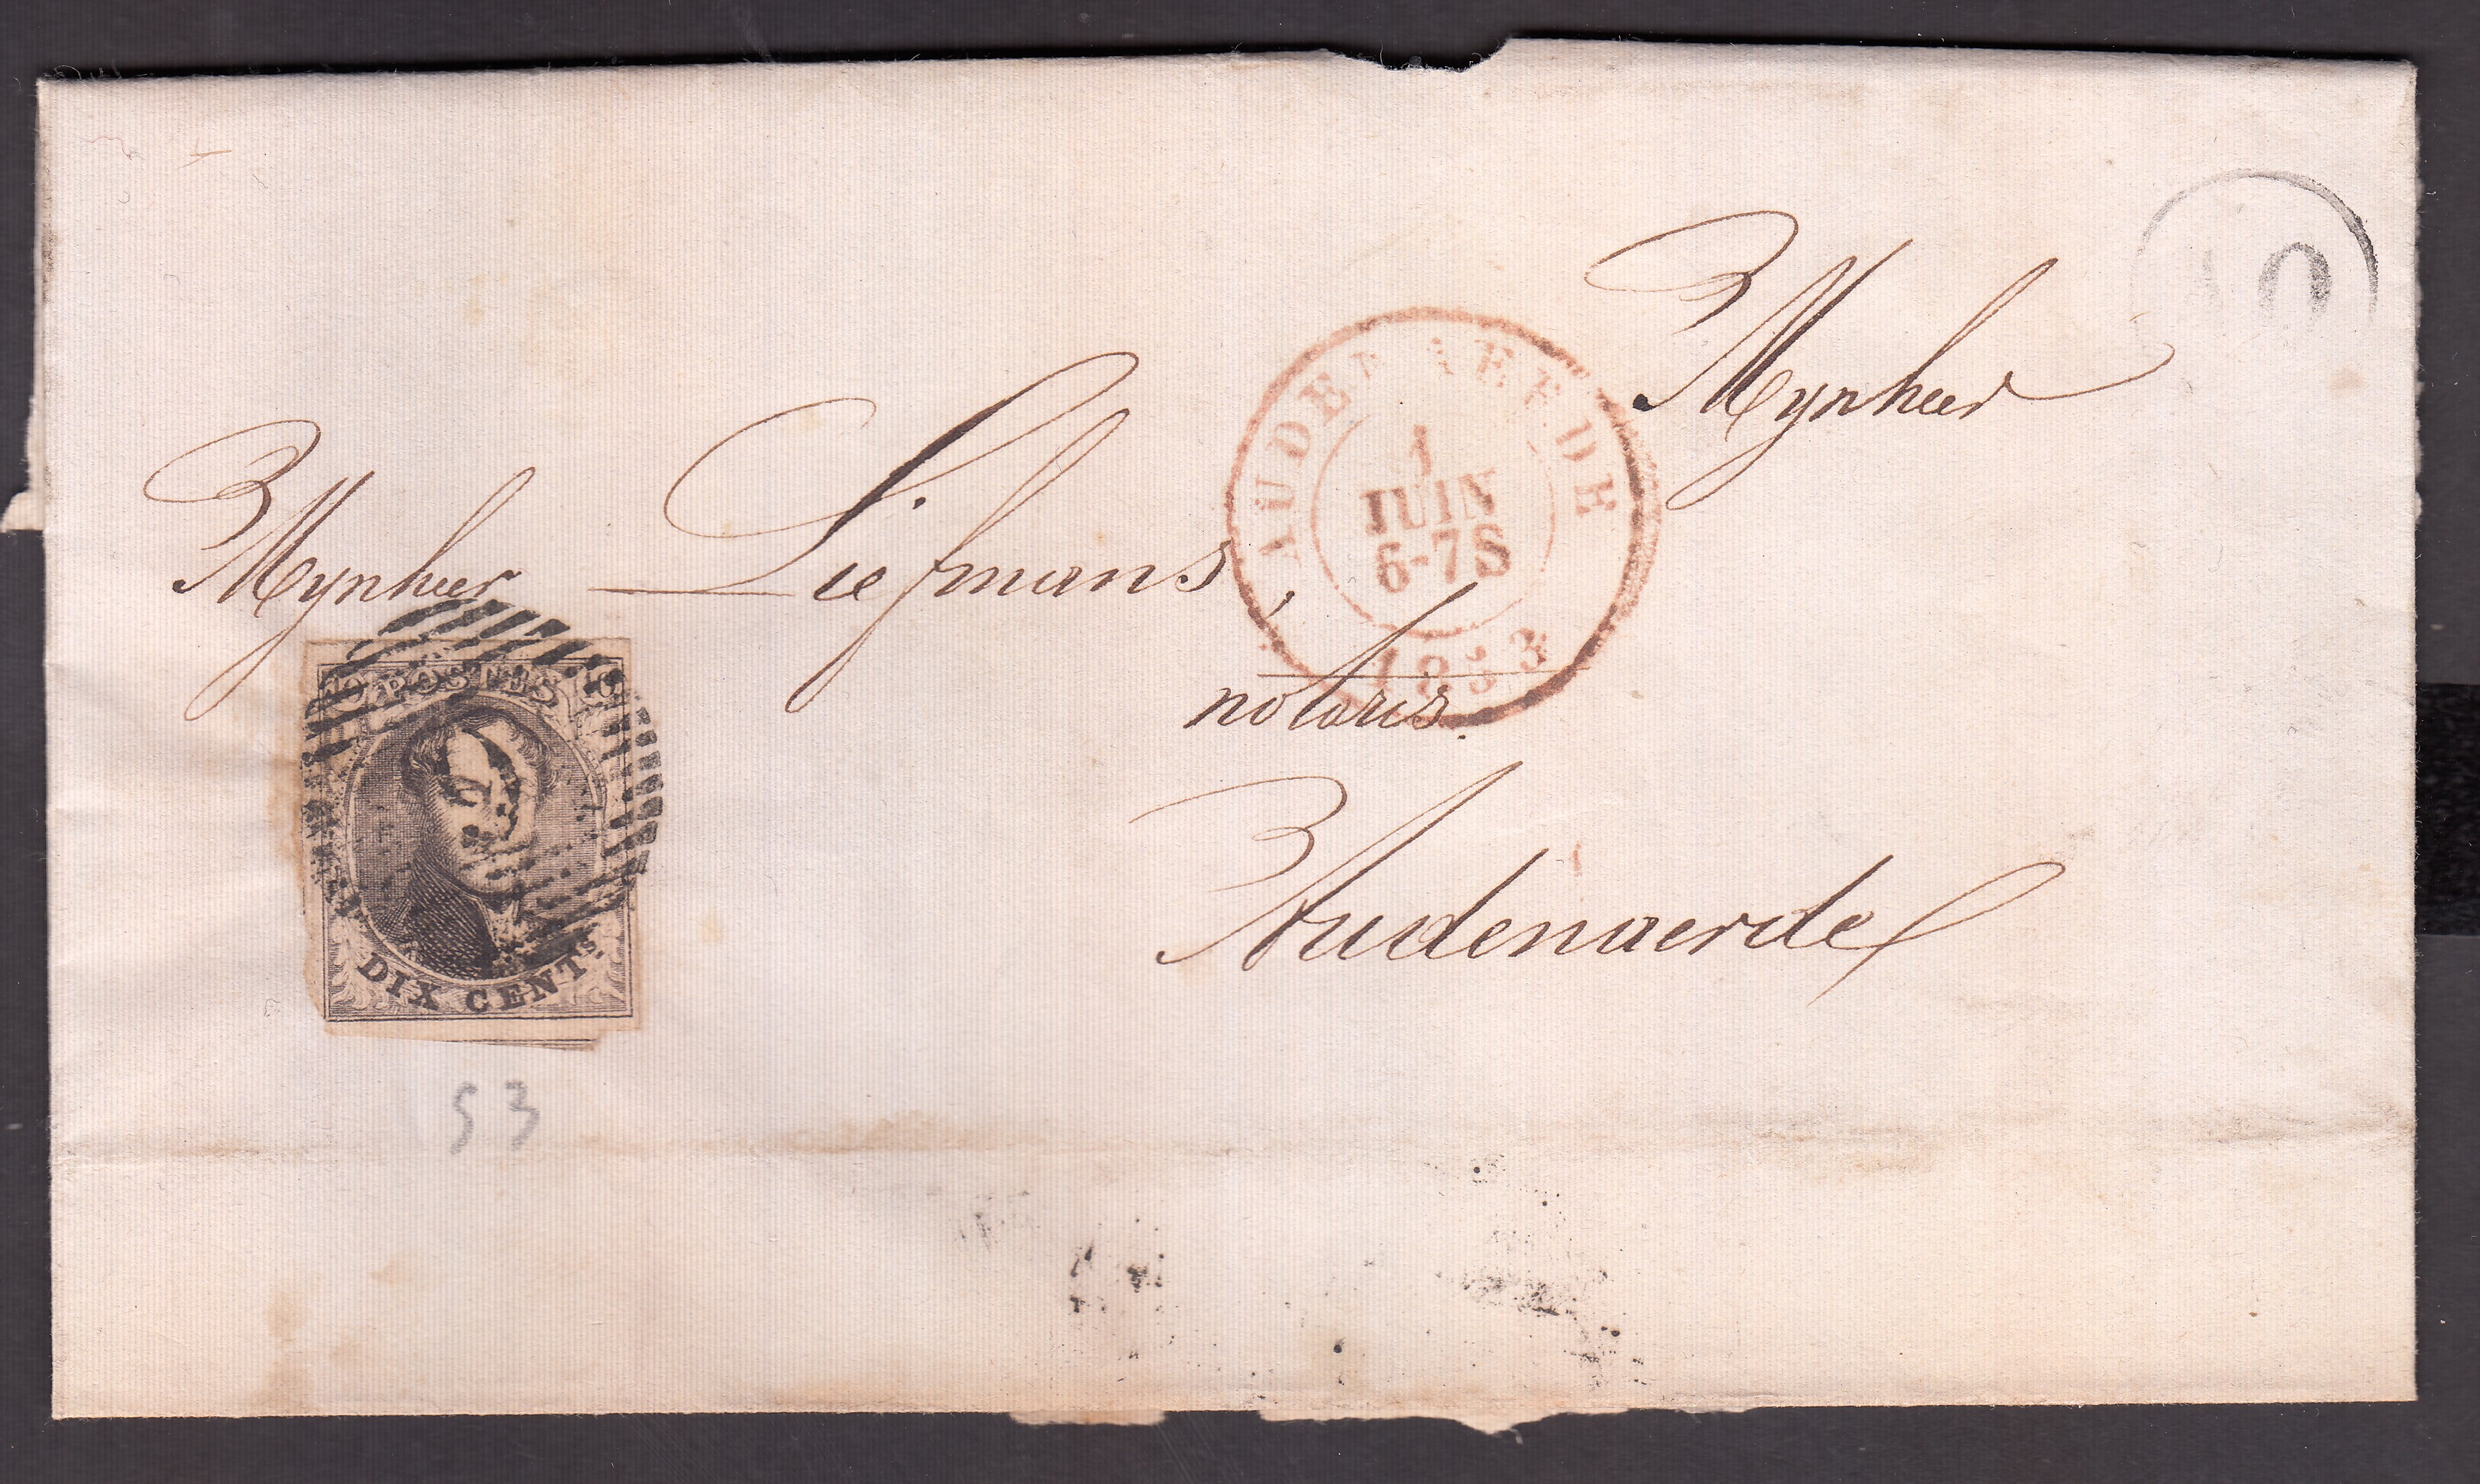 10
Mynheer
Mynheer Liefmans,
notaris.
Audenaerde
AUDENAERDE
1
JUIN
6-7S
1853
10 POSTES 10
DIX CENTS.
53